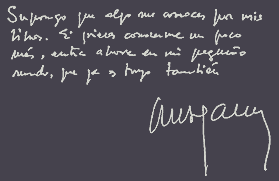 Supongo que algo me conoces por mis
libros. Si quieres conocerme un poco
más, entra ahora en mi pequeño
mundo, que ya es tuyo también